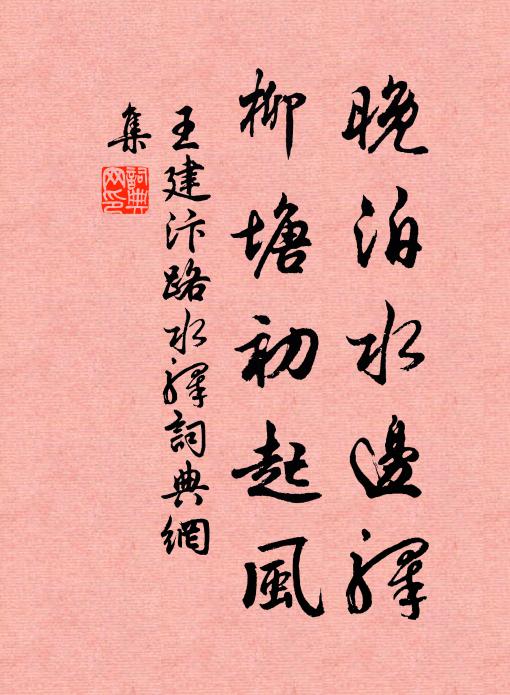 晚泊水邊驛
柳塘初起風
王建汴路水驛詞典網
集
詞典網印